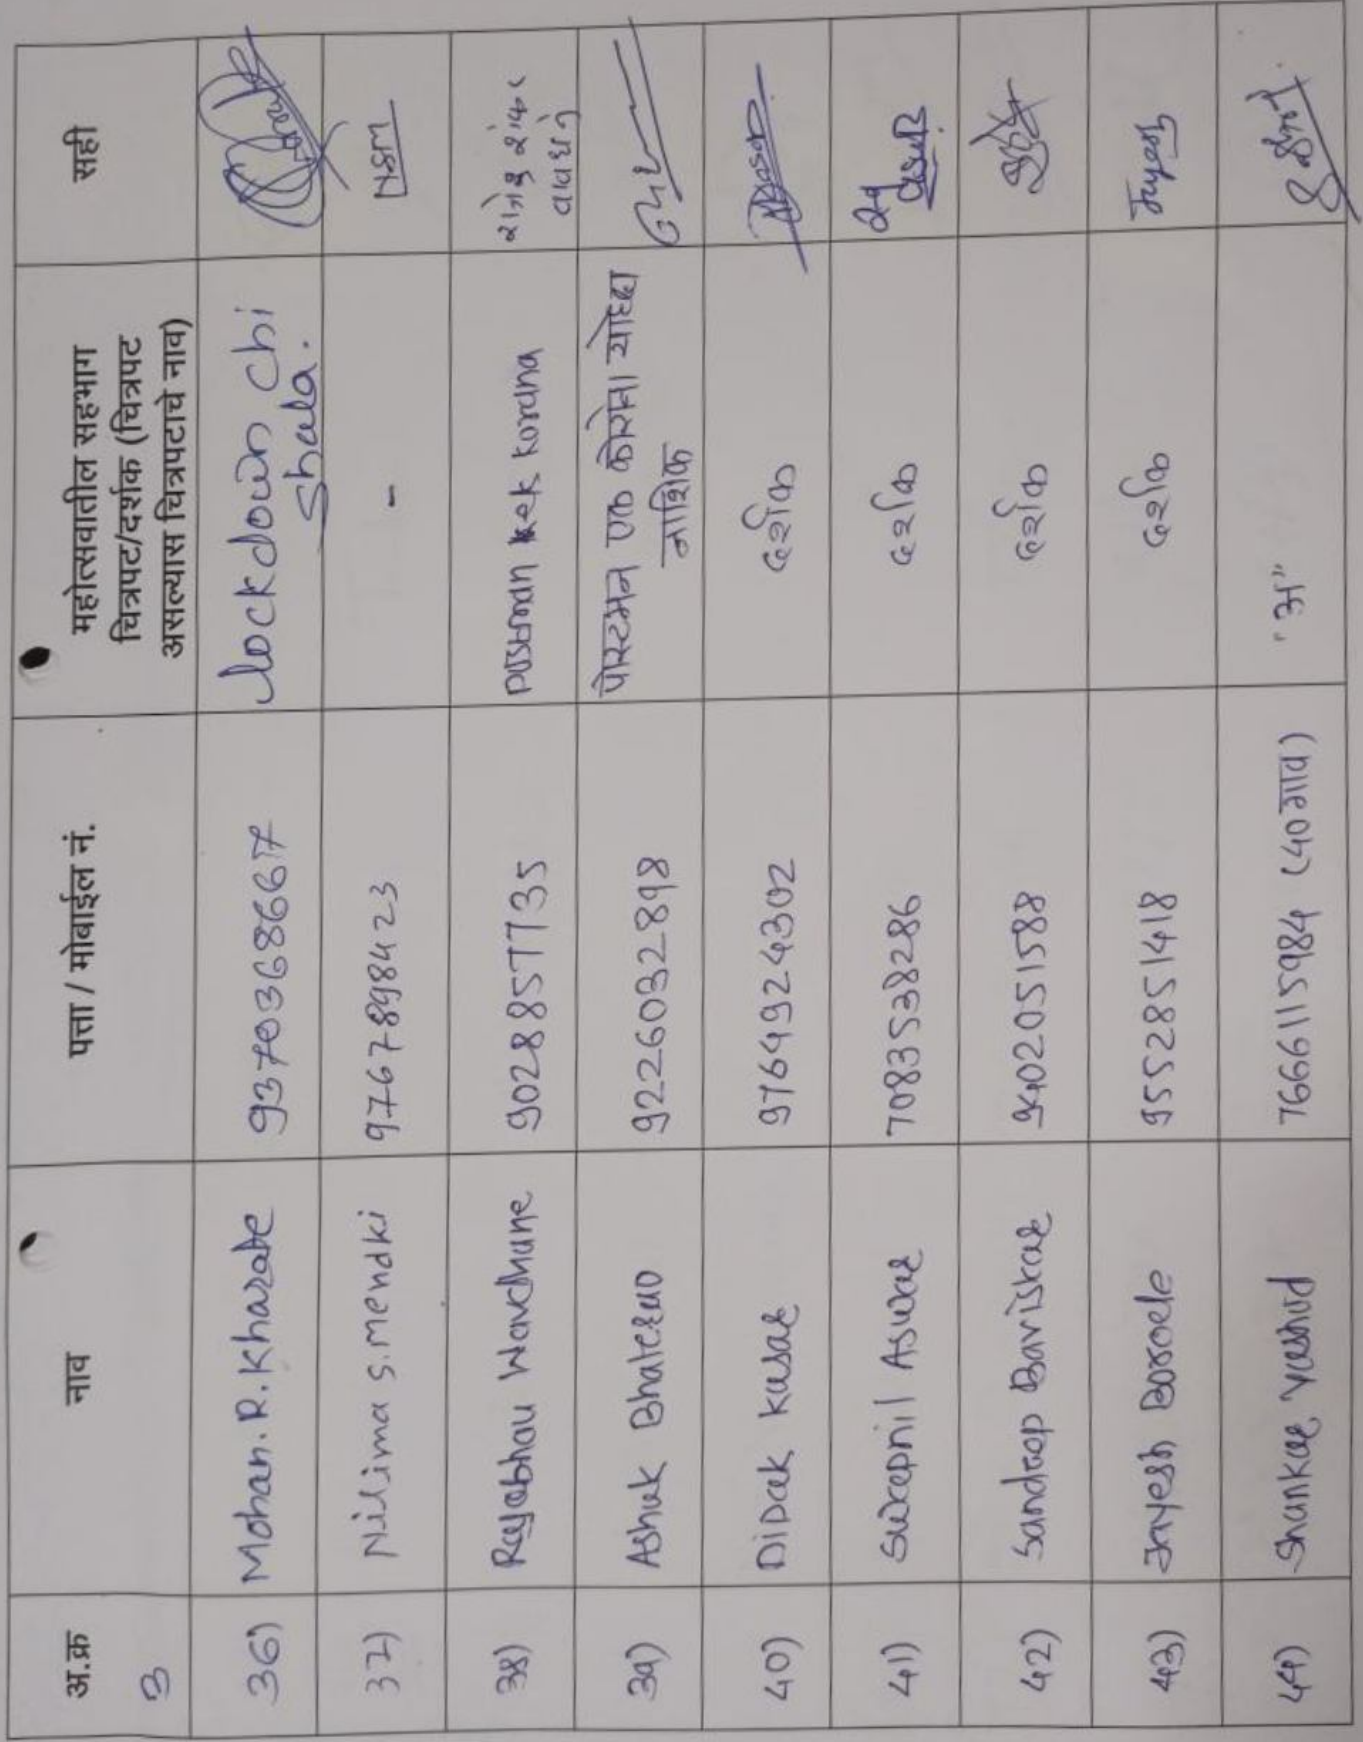 अ.क्र नाव पत्ता / मोबाईल नं. महोत्सवातील सहभाग सही
चित्रपट/दर्शक (चित्रपट
असल्यास चित्रपटाचे नाव)
3
36) Mohan. R. Kharate 9370368667 Lockdown chi
Shala.
37) Nilima s. mendki 9767898423 - NSM
38) Rajabhau Wavdhane 9028857735 postman kek korona
39) Ashok Bhalerao 9226032898 पोस्टमन एक कोरोना योध्दा
नाशिक
40) Dipak kasar 9764924302 दर्शक
41) Swapnil Aswar 7083538286 दर्शक
42) Sandeep Baviskar 9402051588 दर्शक
43) Jayesh Borole 9552851418 दर्शक
44) Shankar 7666115984 (40गाव) "अ"